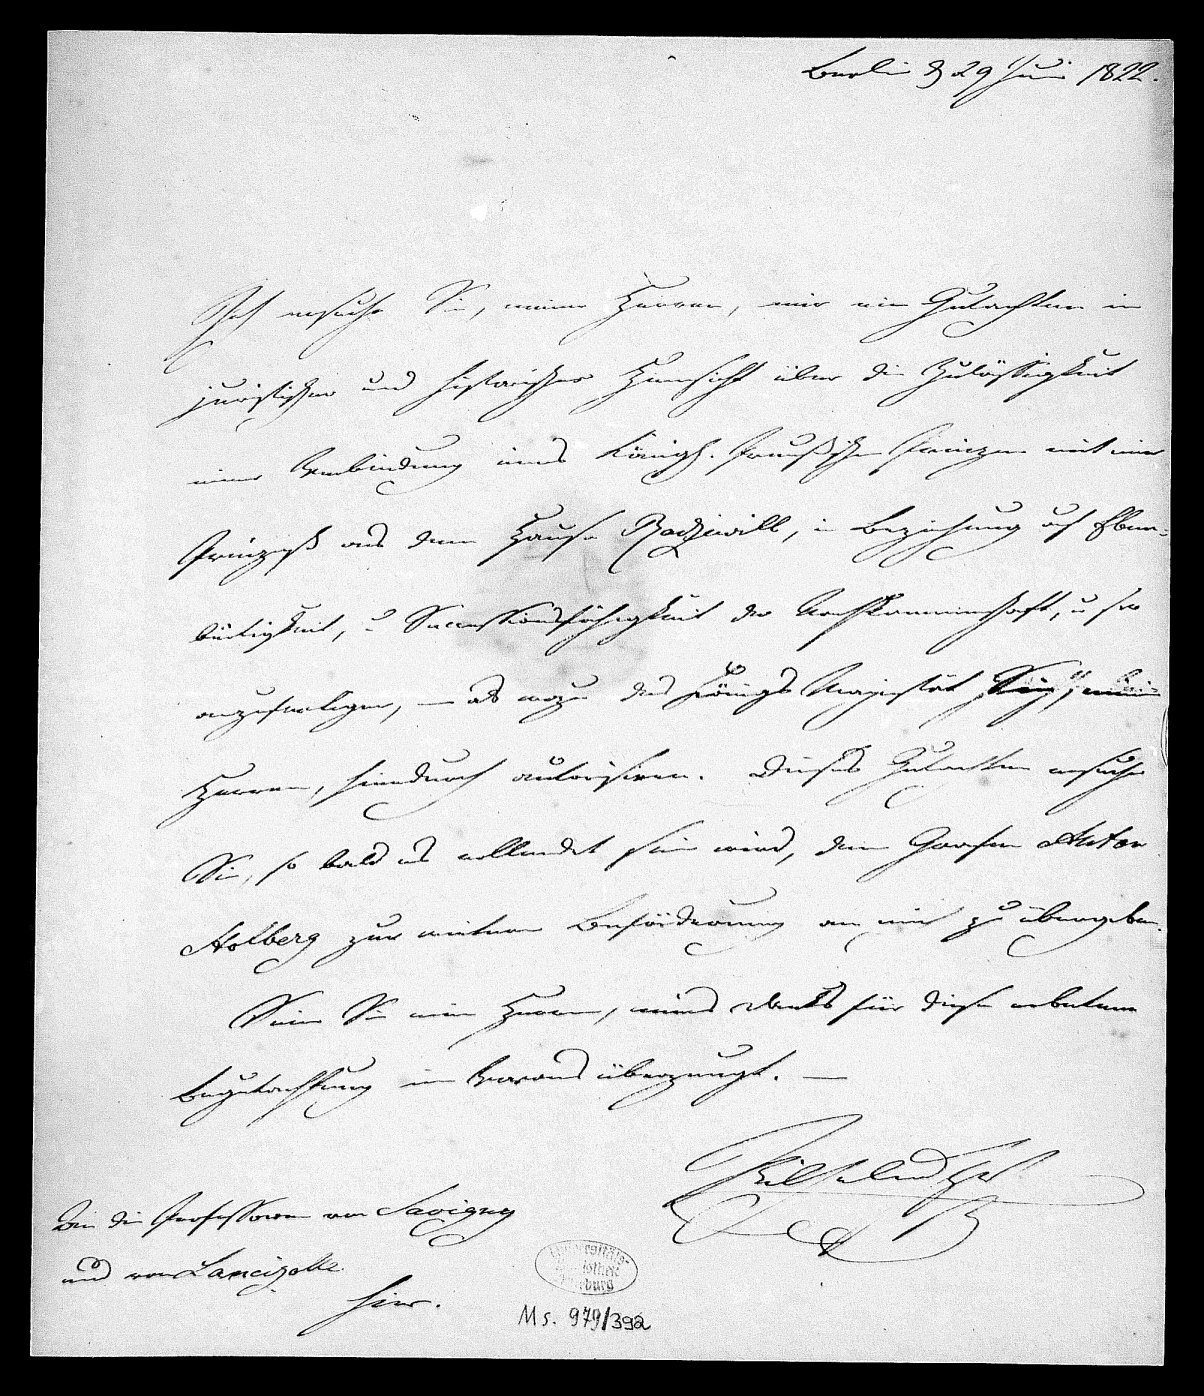 Berlin d 29 Juni 1822.
Ich ersuche Sie, meine Herren, mir ein Gutachten in
juristischer und historischer Hinsicht über die Zulässigkeit
einer Verbindung eines Königl. Preußischen Prinzen mit einer
Prinzeß aus dem Hause Radziwill, in Beziehung auf Eben-
bürtigkeit, u Successionsfähigkeit der Nachkommenschaft,
anzufertigen, — als wozu des Königs Majestät Sie, meine
Herren, hierdurch autorisiren. Dieses Gutachten ersuche
Sie, so bald es vollendet sein wird, dem Grafen Anton
Stolberg zur weitern Beförderung an mich zu übergeben.
Seien Sie meine Herren, meines Danks für diese erbetene
Begutachtung im Voraus überzeugt. —
Wilhelm
die Professoren von Savigny
und von Lancizolle
hier.
Universitäts-
Bibliothek
Marburg
Ms. 979/392